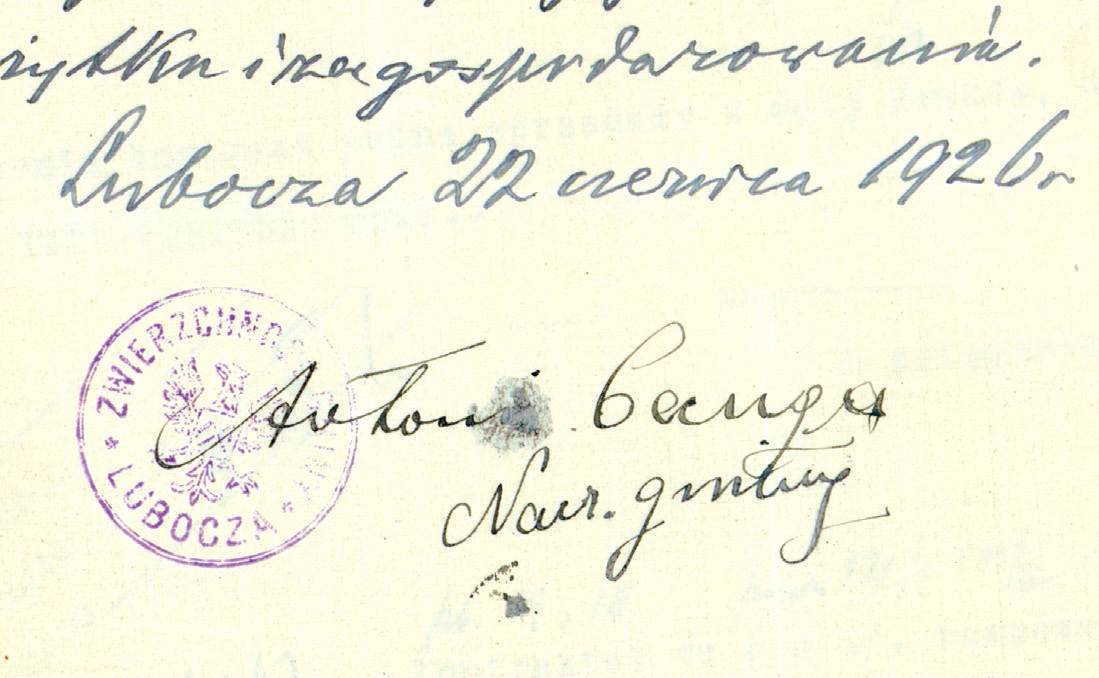 żytku i zagospodarowania.
Lubocza 22 czerwca 1926 r.
ZWIERZCHNOŚ
LUBOCZA
Antoni
Nacz. gminy